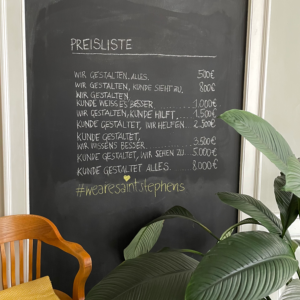 PREISLISTE
WIR GESTALTEN ALLES. 500€
WIR GESTALTEN, KUNDE SIEHT ZU. 800€
WIR GESTALTEN,
KUNDE WEISS ES BESSER. 1.000€
WIR GESTALTEN, KUNDE HILFT. 1.500€
KUNDE GESTALTET, WIR HELFEN. 2.500€
KUNDE GESTALTET,
WIR WISSENS BESSER. 3.500€
KUNDE GESTALTET, WIR SEHEN ZU. 5.000€
KUNDE GESTALTET ALLES. 8.000€
#wearesaintstephens